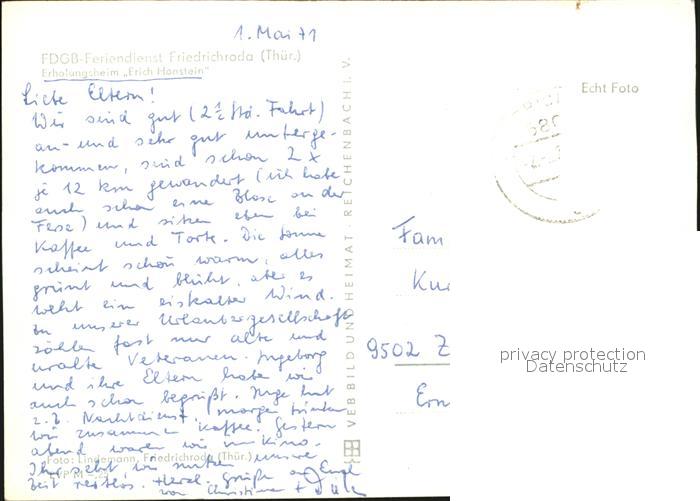 1. Mai 71
FDGB-Feriendienst Friedrichroda (Thür.)
Erholungsheim „Erich Honstein“
Liebe Eltern!
Wir sind gut (2½ Std. Fahrt)
an- und sehr gut unterge-
kommen, sind schon 2 x
je 12 km gewandert (ich habe
auch schon eine Blase an der
Ferse) und sitzen eben bei
Kaffee und Torte. Die Sonne
scheint schön warm, alles
grünt und blüht, aber es
weht ein eiskalter Wind.
In unserer Urlaubergesellschaft
zählen fast nur alte und
uralte Veteranen. Ingeborg
und ihre Eltern habe wir
auch schon begrüßt. Inge hat
z.Z. Nachtdienst, morgen trinken
wir zusammen Kaffee. Gestern
abend waren wir im Kino.
Ihr seht, wir nutzen unsere
Zeit restlos. Herzl. Grüße an
von Christine +
Foto: Lindemann, Friedrichroda (Thür.)
VEB BILD UND HEIMAT · REICHENBACH I. V.
Echt Foto
Fam
Kur
9502 Z
Ern
privacy protection
Datenschutz